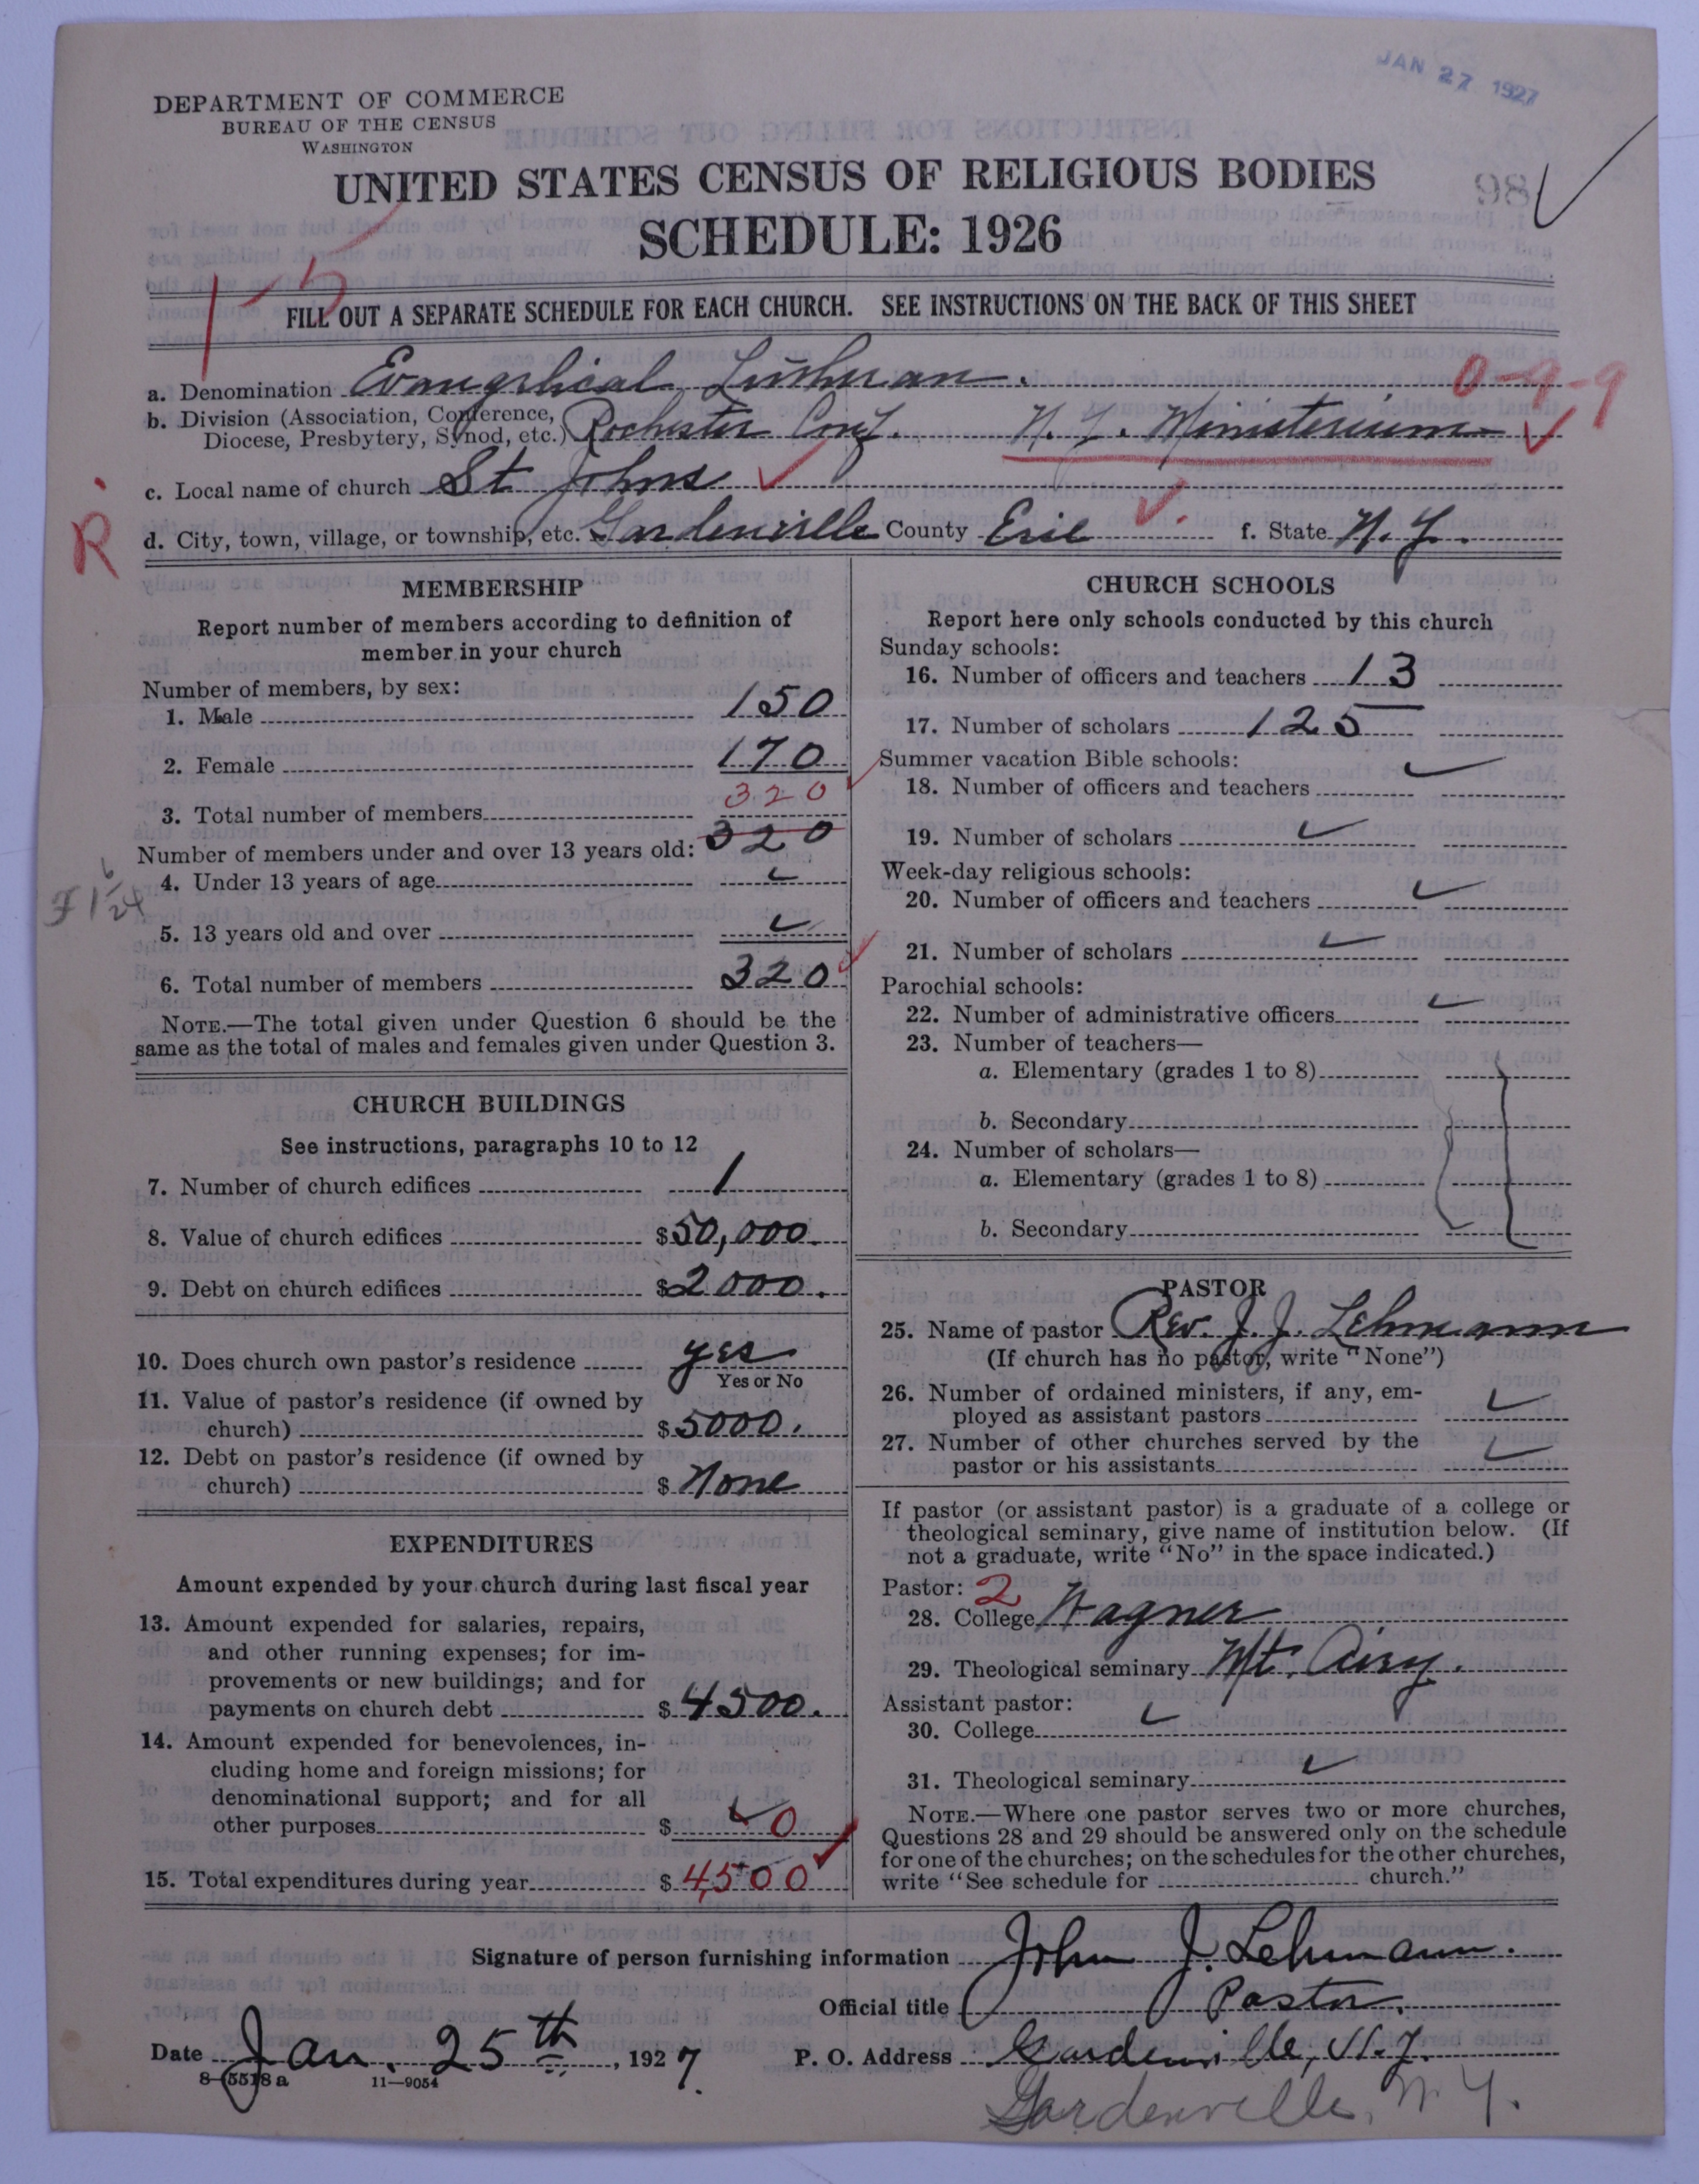 JAN 27 1927
DEPARTMENT OF COMMERCE
BUREAU OF THE CENSUS
WASHINGTON
UNITED STATES CENSUS OF RELIGIOUS BODIES
98
SCHEDULE: 1926
FILL OUT A SEPARATE SCHEDULE FOR EACH CHURCH. SEE INSTRUCTIONS ON THE BACK OF THIS SHEET
a. Denomination Evangelical Lutheran. 0-9-9
b. Division (Association, Conference,
Diocese, Presbytery, Synod, etc.) Rochester Conf. N. Y. Ministerium
c. Local name of church St Johns
R
d. City, town, village, or township, etc. Gardenville County Erie f. State N. Y.
MEMBERSHIP
Report number of members according to definition of
member in your church
Number of members, by sex:
1. Male 150
2. Female 170
320
3. Total number of members
320
Number of members under and over 13 years old:
4. Under 13 years of age
5. 13 years old and over
6. Total number of members 320
NOTE.—The total given under Question 6 should be the
same as the total of males and females given under Question 3.
CHURCH BUILDINGS
See instructions, paragraphs 10 to 12
7. Number of church edifices 1
8. Value of church edifices $50,000.
9. Debt on church edifices $2000.
10. Does church own pastor's residence yes
Yes or No
11. Value of pastor's residence (if owned by
church) $5000.
12. Debt on pastor's residence (if owned by
church) $ None
EXPENDITURES
Amount expended by your church during last fiscal year
13. Amount expended for salaries, repairs,
and other running expenses; for im-
provements or new buildings; and for
payments on church debt $ 4500.
14. Amount expended for benevolences, in-
cluding home and foreign missions; for
denominational support; and for all
other purposes $ 0
15. Total expenditures during year $ 4500
CHURCH SCHOOLS
Report here only schools conducted by this church
Sunday schools:
16. Number of officers and teachers 13
17. Number of scholars 125
Summer vacation Bible schools:
18. Number of officers and teachers
19. Number of scholars
Week-day religious schools:
20. Number of officers and teachers
21. Number of scholars
Parochial schools:
22. Number of administrative officers
23. Number of teachers—
a. Elementary (grades 1 to 8)
b. Secondary
24. Number of scholars—
a. Elementary (grades 1 to 8)
b. Secondary
PASTOR
25. Name of pastor Rev. J. J. Lehmann
(If church has no pastor, write "None")
26. Number of ordained ministers, if any, em-
ployed as assistant pastors
27. Number of other churches served by the
pastor or his assistants
If pastor (or assistant pastor) is a graduate of a college or
theological seminary, give name of institution below. (If
not a graduate, write "No" in the space indicated.)
Pastor: 2
28. College Wagner
29. Theological seminary Mt. Airy.
Assistant pastor:
30. College
31. Theological seminary
NOTE.—Where one pastor serves two or more churches,
Questions 28 and 29 should be answered only on the schedule
for one of the churches; on the schedules for the other churches,
write "See schedule for church."
Signature of person furnishing information John J. Lehmann.
Official title Pastor.
Date Jan. 25th, 1927. P. O. Address Gardenville, N.Y.
8-5518a 11-9054
Gardenville, N. Y.